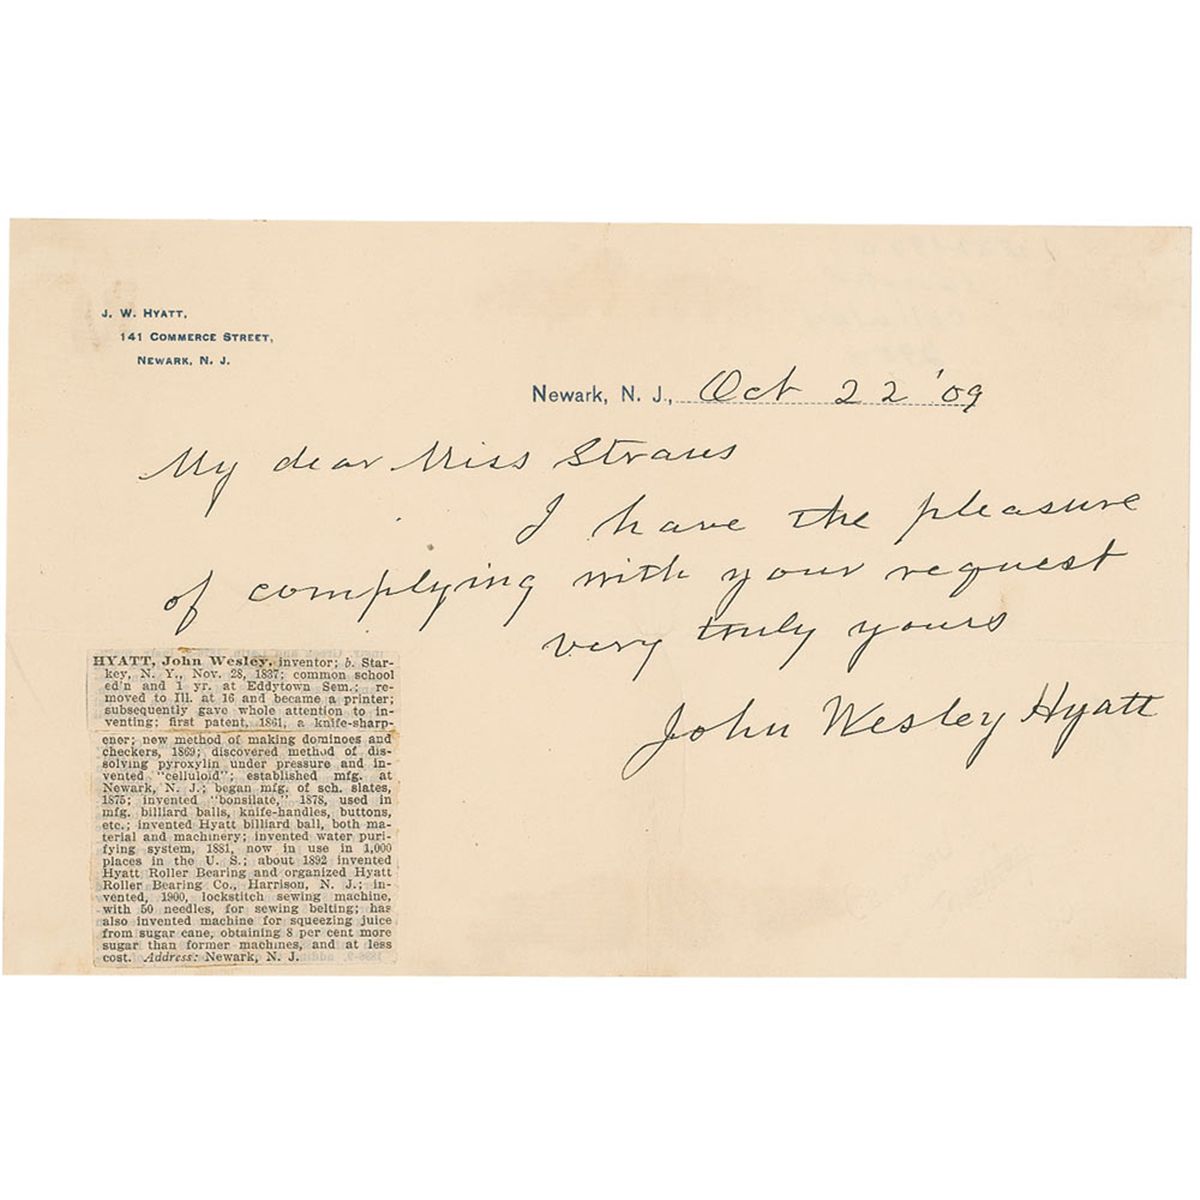 J. W. HYATT,
141 COMMERCE STREET,
NEWARK, N. J.
Newark, N. J., Oct 22 '09
My dear Miss Straus
I have the pleasure
of complying with your request
very truly yours
John Wesley Hyatt
HYATT, John Wesley, inventor; b. Star-
key, N. Y., Nov. 28, 1837; common school
ed'n and 1 yr. at Eddytown Sem.; re-
moved to Ill. at 16 and became a printer;
subsequently gave whole attention to in-
venting; first patent, 1861, a knife-sharp-
ener; new method of making dominoes and
checkers, 1869; discovered method of dis-
solving pyroxylin under pressure and in-
vented "celluloid"; established mfg. at
Newark, N. J.; began mfg. of sch. slates,
1875; invented "bonsilate," 1878, used in
mfg. billiard balls, knife-handles, buttons,
etc.; invented Hyatt billiard ball, both ma-
terial and machinery; invented water puri-
fying system, 1881, now in use in 1,000
places in the U. S.; about 1892 invented
Hyatt Roller Bearing and organized Hyatt
Roller Bearing Co., Harrison, N. J.; in-
vented, 1900, lockstitch sewing machine,
with 50 needles, for sewing belting; has
also invented machine for squeezing juice
from sugar cane, obtaining 8 per cent more
sugar than former machines, and at less
cost. Address: Newark, N. J.